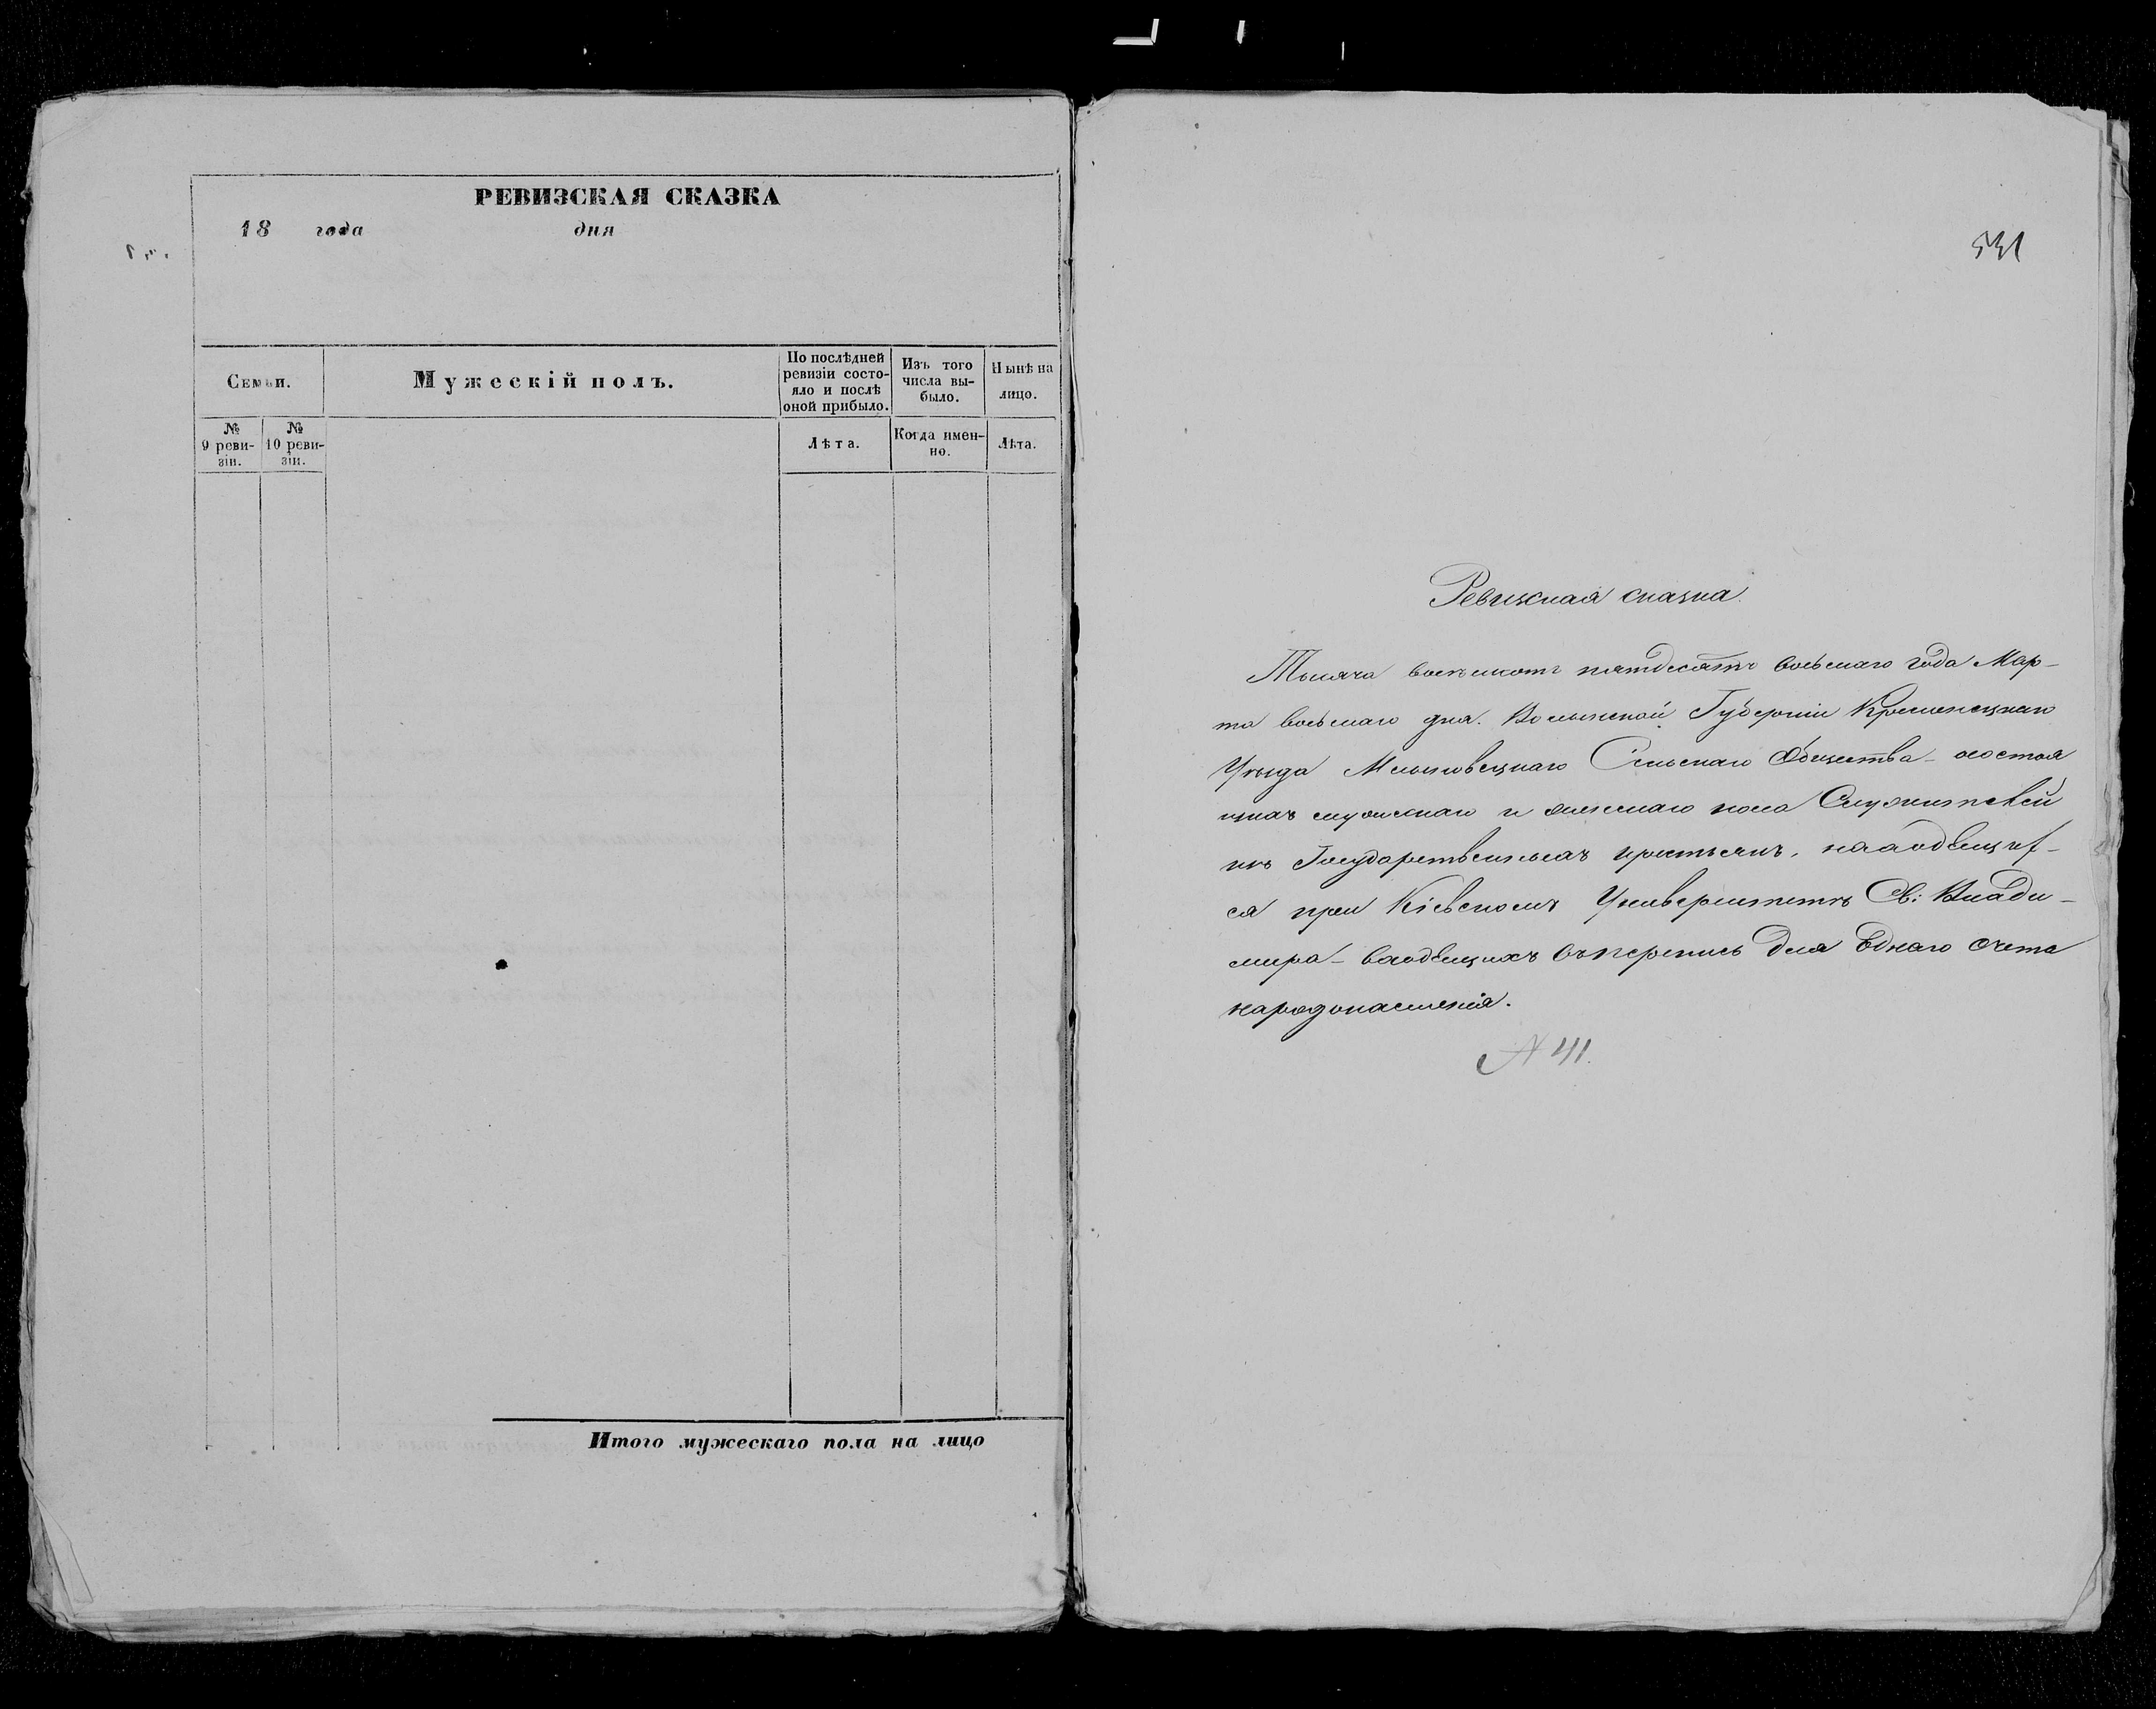 РЕВИЗСКАЯ СКАЗКА
18 года дня
Семьи.
Мужескій полъ.
По послѣдней
ревизіи состо-
яло и послѣ
оной прибыло.
Изъ того
числа вы-
было.
Нынѣ на
лицо.
№
9 реви-
зіи.
№
10 реви-
зіи.
Лѣта.
Когда имен-
но.
Лѣта.
Итого мужескаго пола на лицо
531
Ревизская сказка.
Тысяча восемьсотъ пятдесятъ восьмаго года Мар-
та восьмаго дня. Волынской Губерніи Кременецкаго
Уѣзда Сельскаго Общества о состоя
щихъ мужскаго и женскаго пола
Государственныхъ крестьянъ, находящих-
ся при Кіевскомъ Университетѣ Св: Влади-
мира входящихъ въ перепись для счета
народонаселенія.
№ 41.